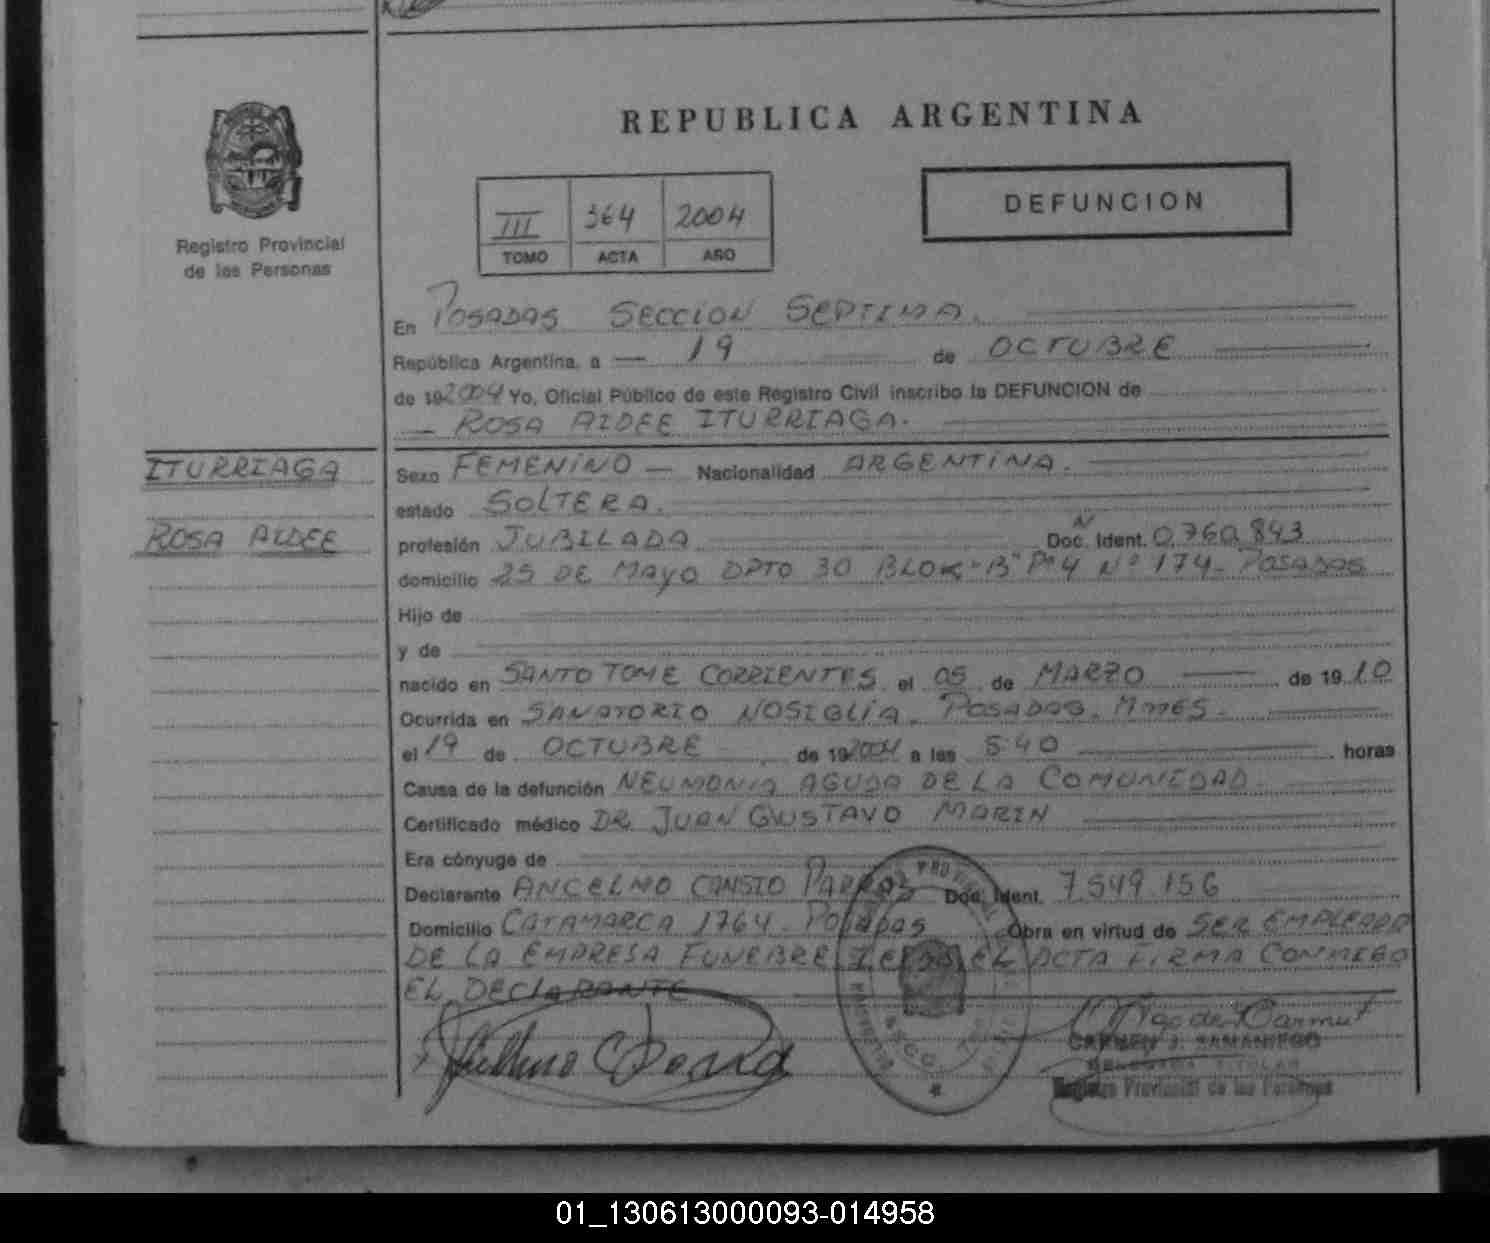 REPUBLICA ARGENTINA
DEFUNCION
III 364 2004
TOMO ACTA AÑO
Registro Provincial
de las Personas
En POSADAS SECCION SEPTIMA.
República Argentina, a 19 de OCTUBRE
de 19 2004 Yo, Oficial Público de este Registro Civil inscribo la DEFUNCION de
ROSA AIDEE ITURRIAGA.
ITURRIAGA
ROSA AIDEE
Sexo FEMENINO Nacionalidad ARGENTINA.
estado SOLTERA.
profesión JUBILADA Doc. Ident. Nº 0.760.843
domicilio 25 DE MAYO DPTO 30 BLOK "B" Pº 4 Nº 174 - POSADAS
Hijo de
y de
nacido en SANTO TOME CORRIENTES el 05 de MARZO de 1910
Ocurrida en SANATORIO NOSIGLIA. POSADAS. Mnes.
el 19 de OCTUBRE de 19 2004 a las 5:40 horas
Causa de la defunción NEUMONIA AGUDA DE LA COMUNIDAD
Certificado médico DR JUAN GUSTAVO MARIN
Era cónyuge de
Declarante ANCELMO Doc. Ident. 7.549.156
Domicilio CATAMARCA 1764 - POSADAS Obra en virtud de SER EMPLEADO
DE LA EMPRESA FUNEBRE EL ACTA FIRMA CONMIGO
EL DECLARANTE
CARMEN J. SAMANIEGO
Registro Provincial de las Personas
01_130613000093-014958